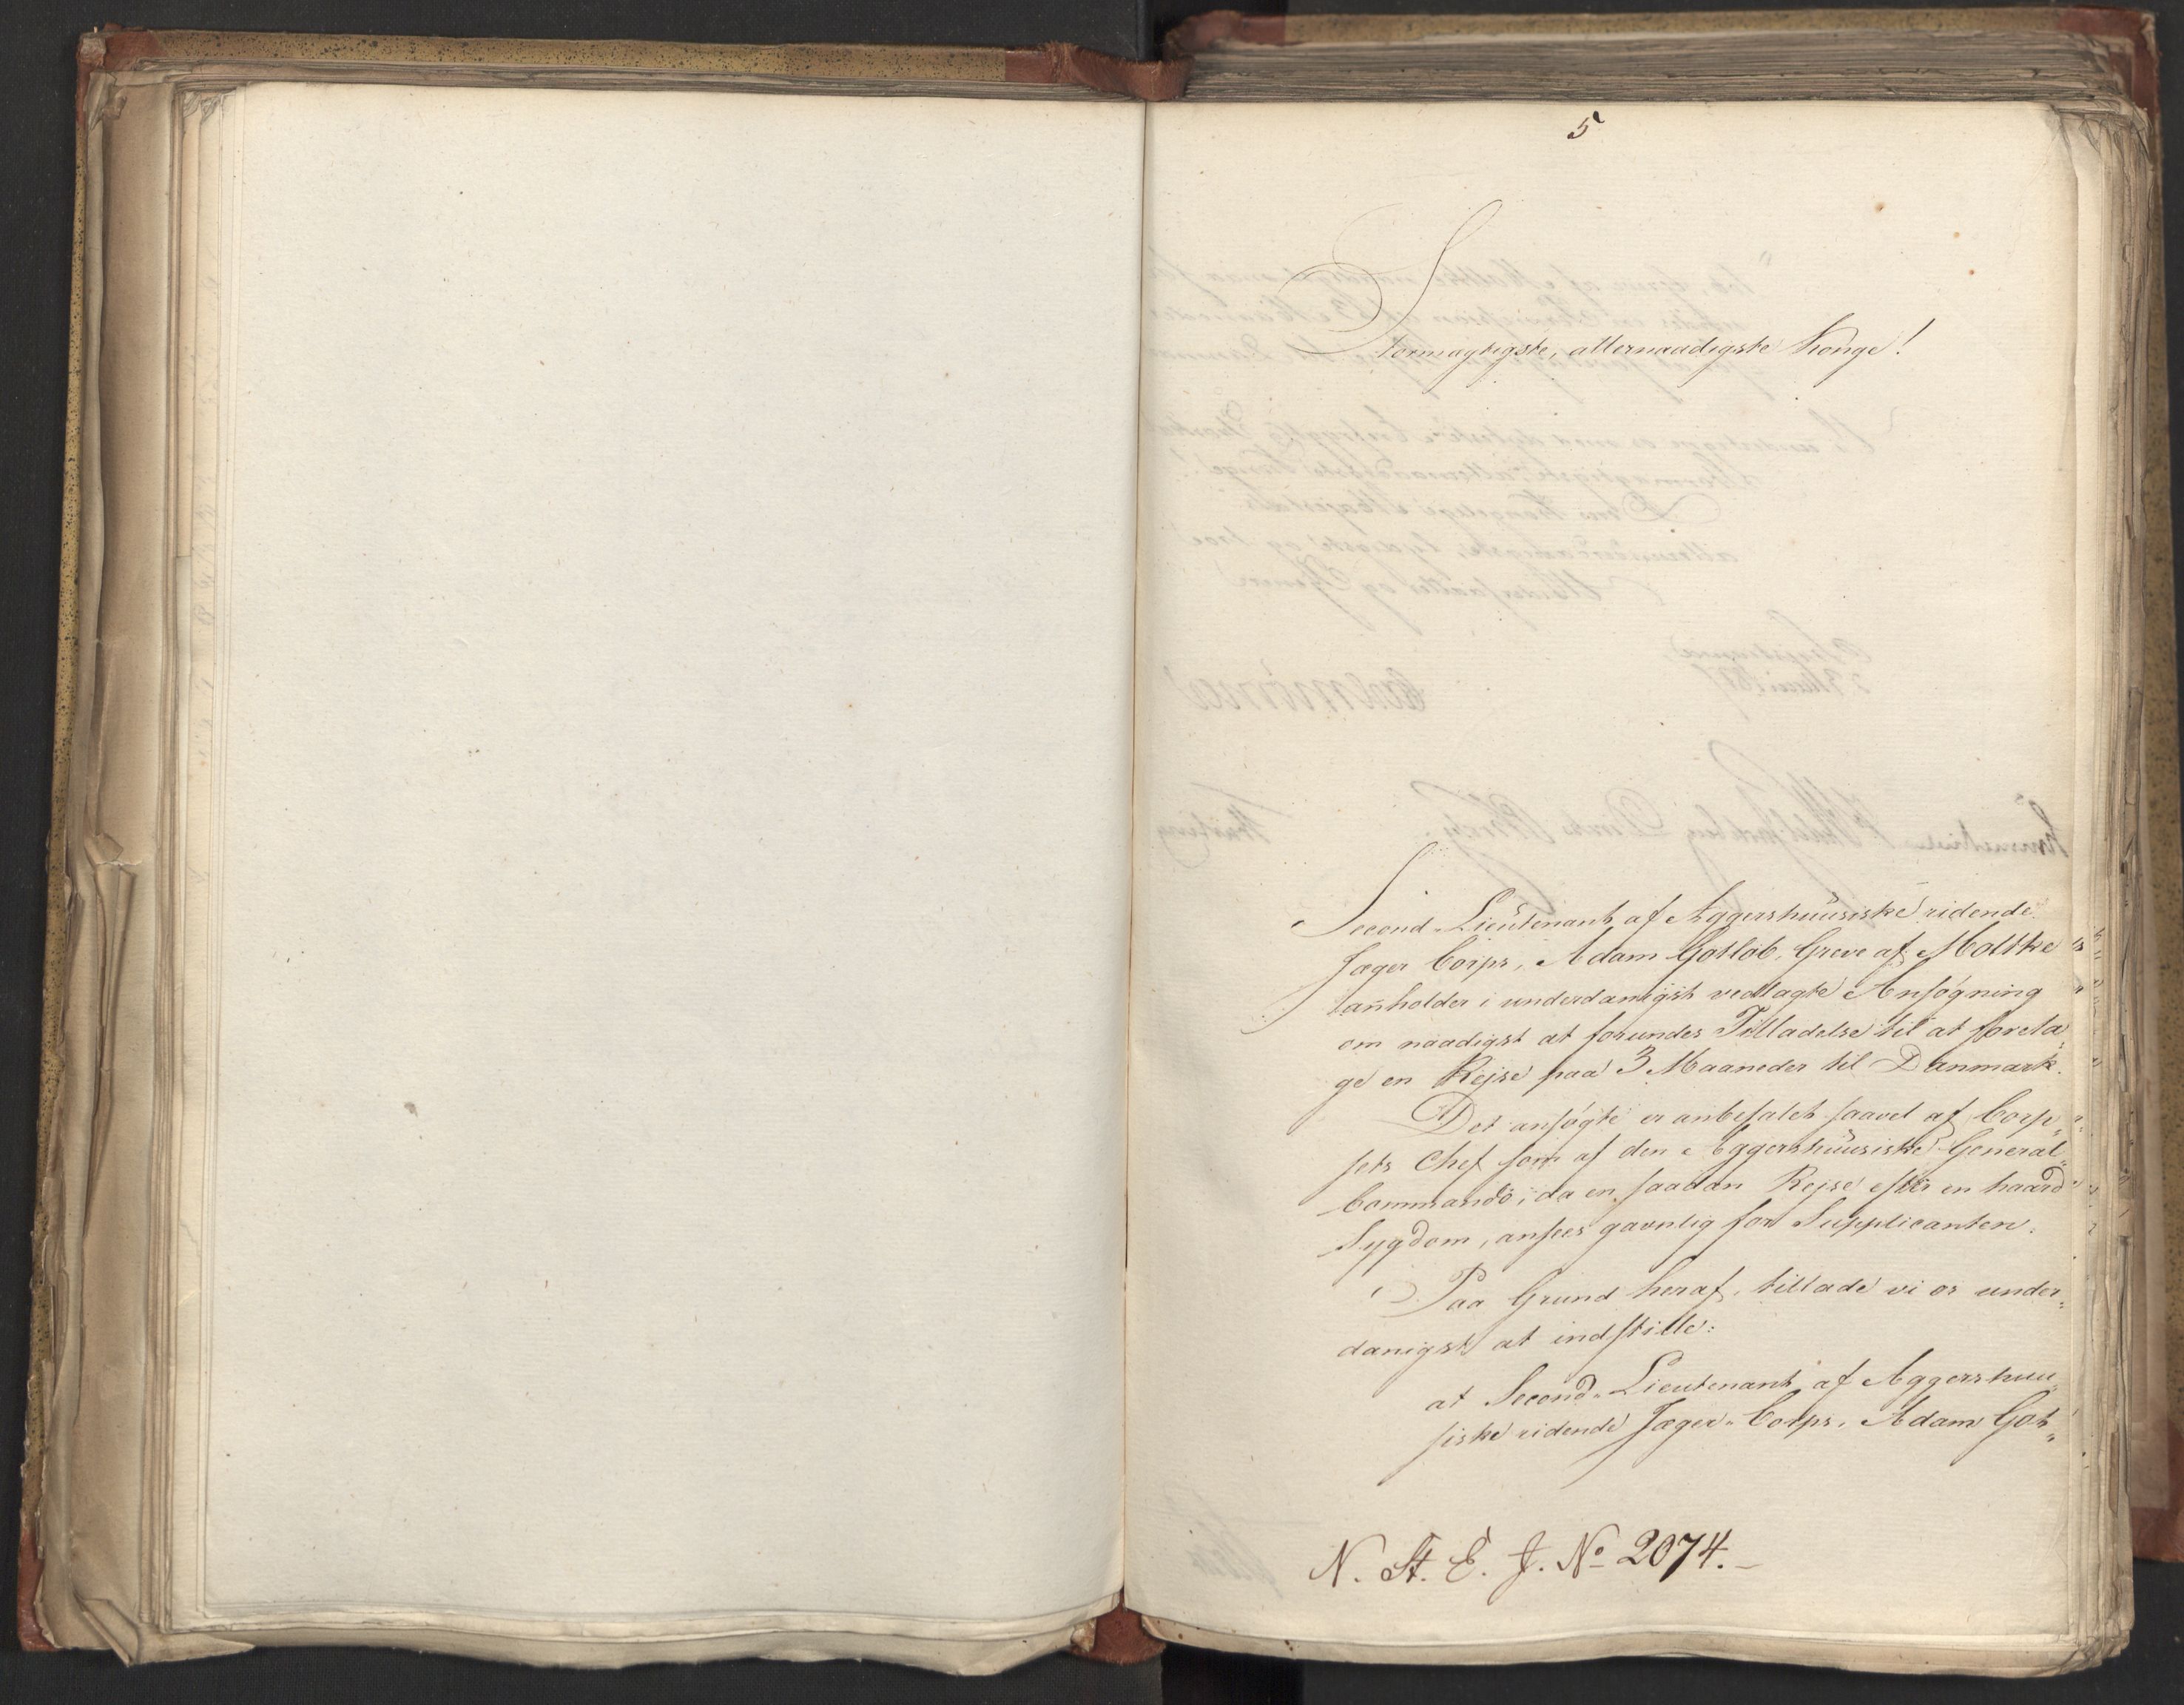 5
Stormægtigste, allernaadigste Konge!
Second-Lieutenant af Aggershuusiske ridende
Jæger Corps, Adam Gotlob, Greve af Moltke
anholder i underdanigst vedlagte Ansøgning
om naadigst at forundes Tilladelse til at foreta„
ge en Rejse paa 3 Maaneder til Danmark.
Det ansøgte er anbefalet saavel af Corp„
sets Chef som af den Aggershuusiske General„
Commando, da en saadan Rejse efter en haard
Sygdom, ansees gavnlig for Supplicanten.
Paa Grund heraf, tillade vi os under„
danigst at indstille:
at Second-Lieutenant af Aggershuu„
siske ridende Jæger-Corps, Adam Got„
N. St. E. J. No 2074.-